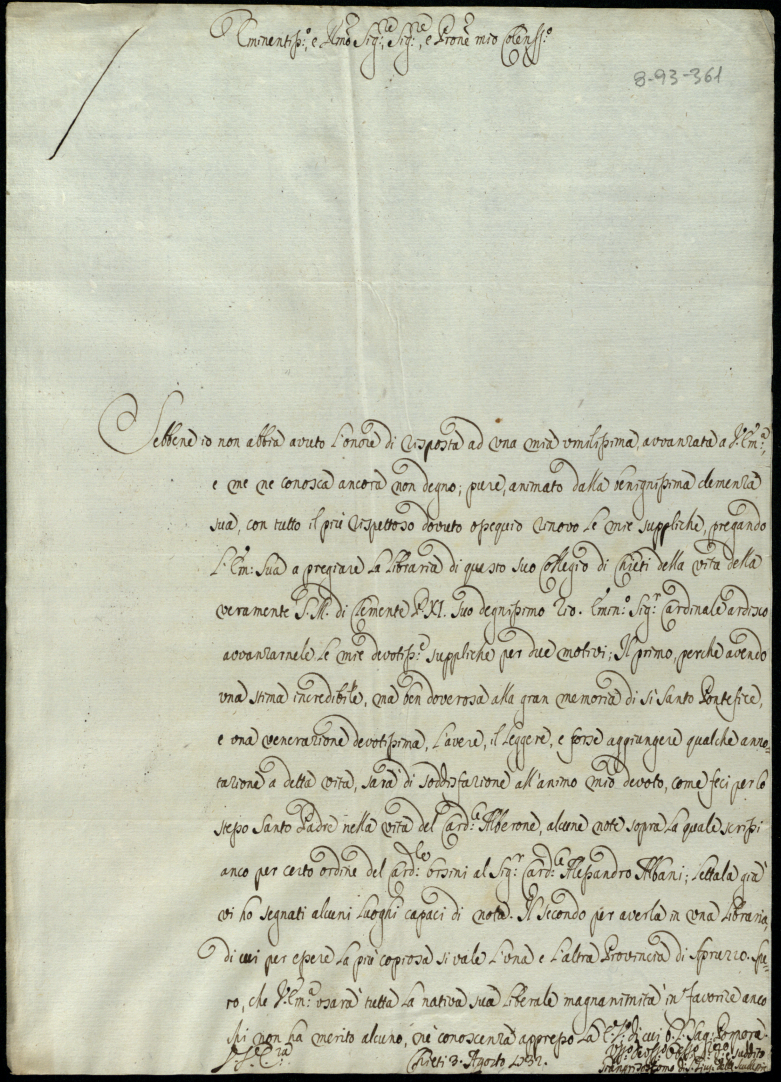 Eminentiss.º, e Rmo Sig.re, Sig.re, e Prone mio Colenss.º
8-93-361
Sebbene io non abbia avuto l'onore di risposta ad una mia umilissima, avvanzata a V. Em.a,
e me ne conosca ancora non degno; pure, animato dalla benignissima clemenza
sua, con tutto il più rispettoso dovuto ossequio rinovo le mie suppliche, pregando
l'Em: Sua a pregiare la libraria di questo suo Collegio di Chieti della vita della
veramente S. M. di Clemente P. XI. suo degnissimo Zio. Emin.º Sig.r Cardinale ardisco
avvanzarnele le mie devotiss.e suppliche per due motivi; Il primo, perche avendo
una stima incredibile, ma ben doverosa alla gran memoria di sì Santo Pontefice,
e una venerazione devotissima, l'avere, il leggere, e forse aggiungere qualche anno-
tazione a detta vita, sarà di soddisfazione all'animo mio devoto, come feci per lo
stesso Santo Padre nella vita del Card.le Alberone, alcune note sopra la quale scrissi
anco per certo ordine del Card.le Orsini al Sig.r Card.le Alessandro Albani; lettala già
vi ho segnati alcuni luoghi capaci di nota. Il secondo per averla in una libraria,
di cui per essere la più copiosa si vale l'una e l'altra Provincia di Apruzzo. Spe-
ro, che V. Em.a userà tutta la nativa sua liberale magnanimità in favorire anco
chi non ha merito alcuno, nè conoscenza appresso la di cui Sag: Porpora
Chieti 3. Agosto 1752.